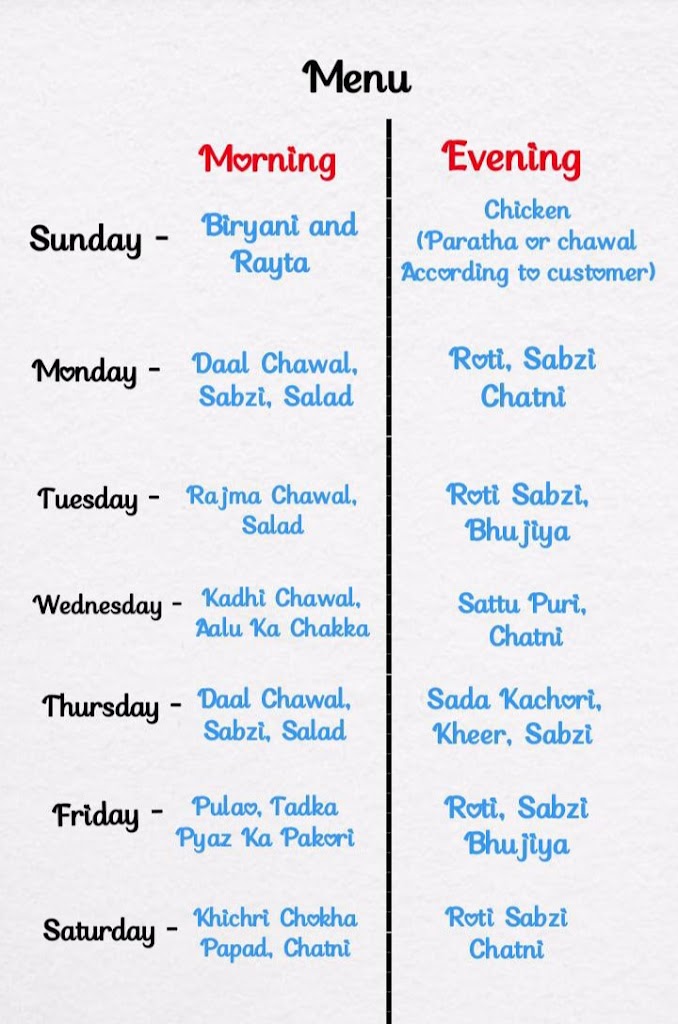 Menu
Morning
Evening
Sunday -
Biryani and
Rayta
Chicken
(Paratha or chawal
According to customer)
Monday -
Daal Chawal,
Sabzi, Salad
Roti, Sabzi
Chatni
Tuesday -
Rajma Chawal,
Salad
Roti Sabzi,
Bhujiya
Wednesday -
Kadhi Chawal,
Aalu Ka Chakka
Sattu Puri,
Chatni
Thursday -
Daal Chawal,
Sabzi, Salad
Sada Kachori,
Kheer, Sabzi
Friday -
Pulao, Tadka
Pyaz Ka Pakori
Roti, Sabzi
Bhujiya
Saturday -
Khichri Chokha
Papad, Chatni
Roti Sabzi
Chatni